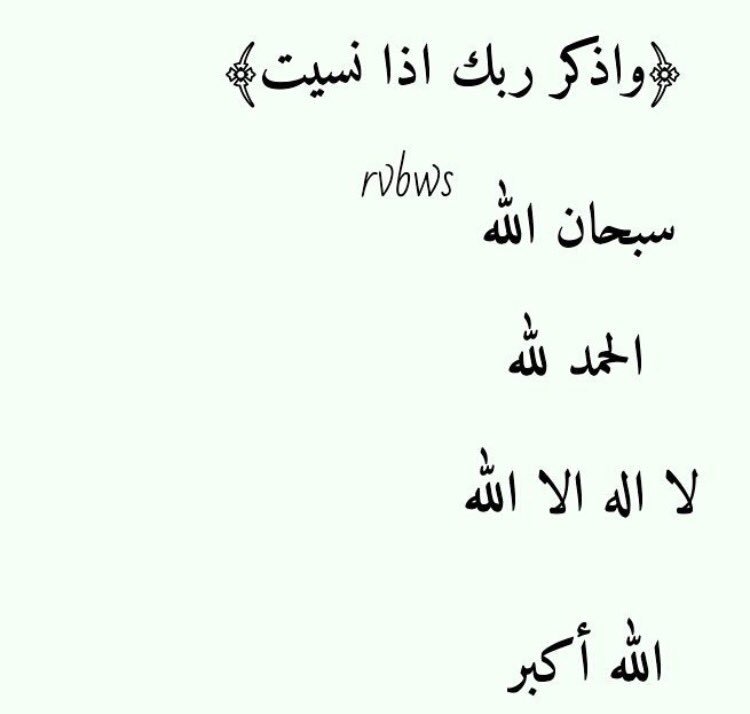 ﴿واذكر ربك اذا نسيت﴾
rvbws
سبحان الله
الحمد لله
لا اله الا الله
الله أكبر